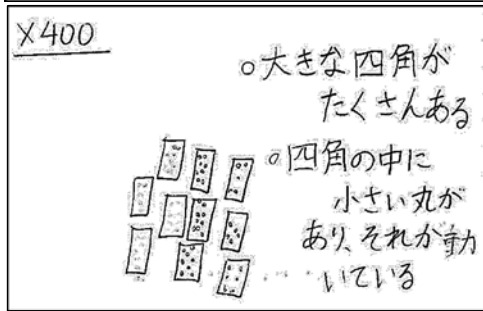 ×400
○大きな四角が
たくさんある
○四角の中に
小さい丸が
あり、それが動
いている